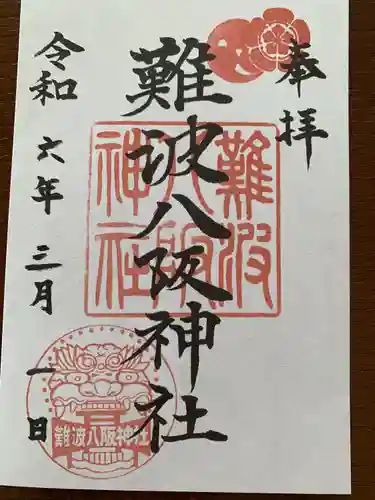 奉拝
難波八阪神社
難波
八阪
神社
令和六年三月一日
難波八阪神社